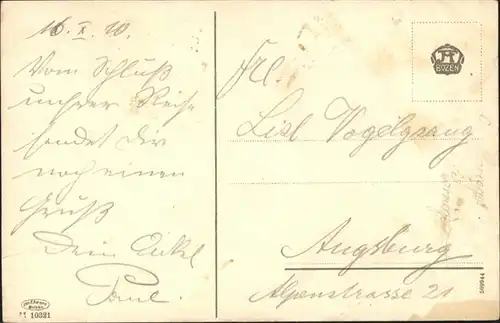 16. X. 10.
Vom Schluß
unsrer Reise
sendet Dir
noch einen
Gruß
Dein Onkel
Paul.
Frl.
Lisl Vogelgsang
Augsburg
Alpenstrasse 21
BOZEN
M 10321